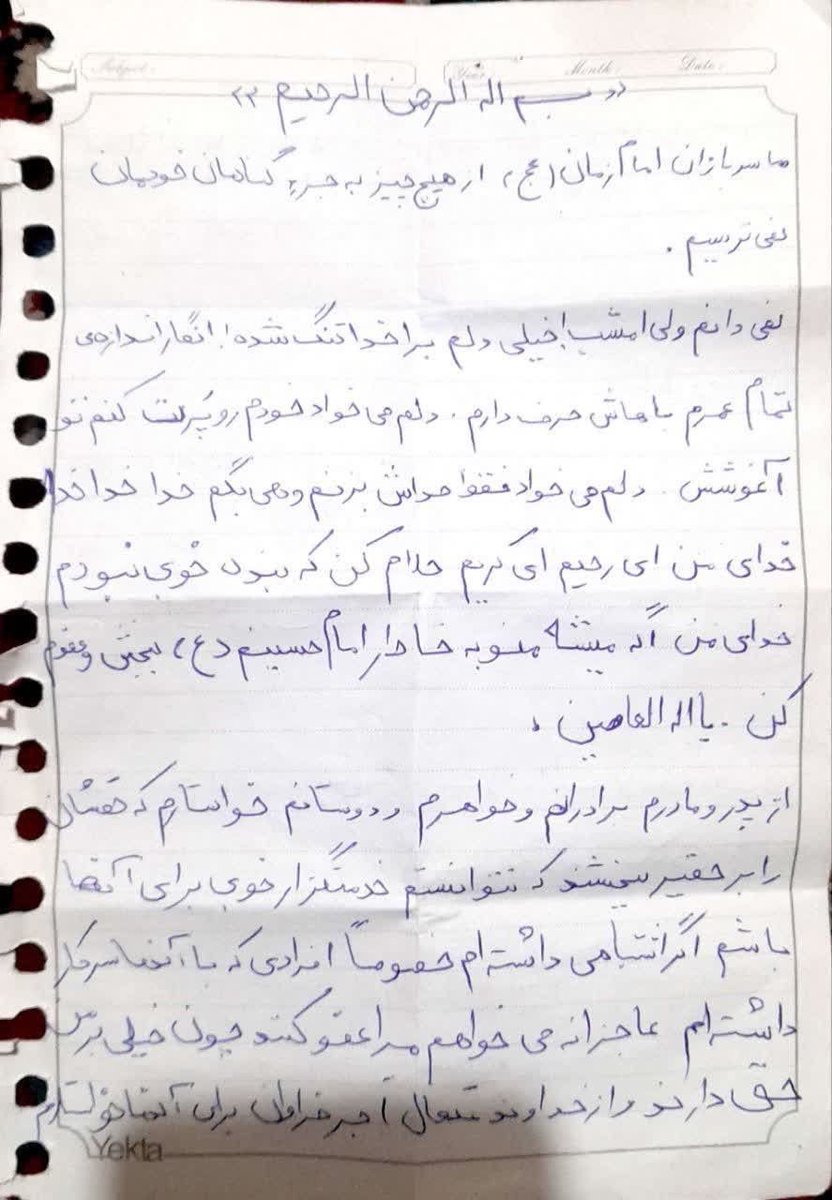 Subject:
Year: Month: Date:
«بسم اله الرحمن الرحیم»
ما سربازان امام زمان (عج) از هیچ چیز به جزء گناهان خودمان
نمی ترسیم .
نمی دانم ولی امشب خیلی دلم برا خدا تنگ شده! انگار اندازه ی
تمام عمرم باهاش حرف دارم . دلم می خواد خودم رو پرت کنم تو
آغوشش . دلم می خواد فقط صداش بزنم و هی بگم خدا خدا خدا
خدای من ای رحیم ای کریم حلالم کن که بنده خوبی نبودم
خدای من اگه میشه منو به خاطر امام حسینم (ع) ببخش و عفوم
کن . یا اله العاصین .
از پدر و مادرم برادرانم و خواهرم و دوستانم خواستارم که حقشان
را بر حقیر ببخشند که نتوانستم خدمتگزار خوبی برای آنها
باشم اگر اشتباهی داشته ام خصوصاً افرادی که با آنها سر و کار
داشته ام عاجزانه می خواهم مرا عفو کنند چون خیلی بر من
حق دارند و از خداوند متعال اجر فراوان برای آنها خواستارم
Yekta